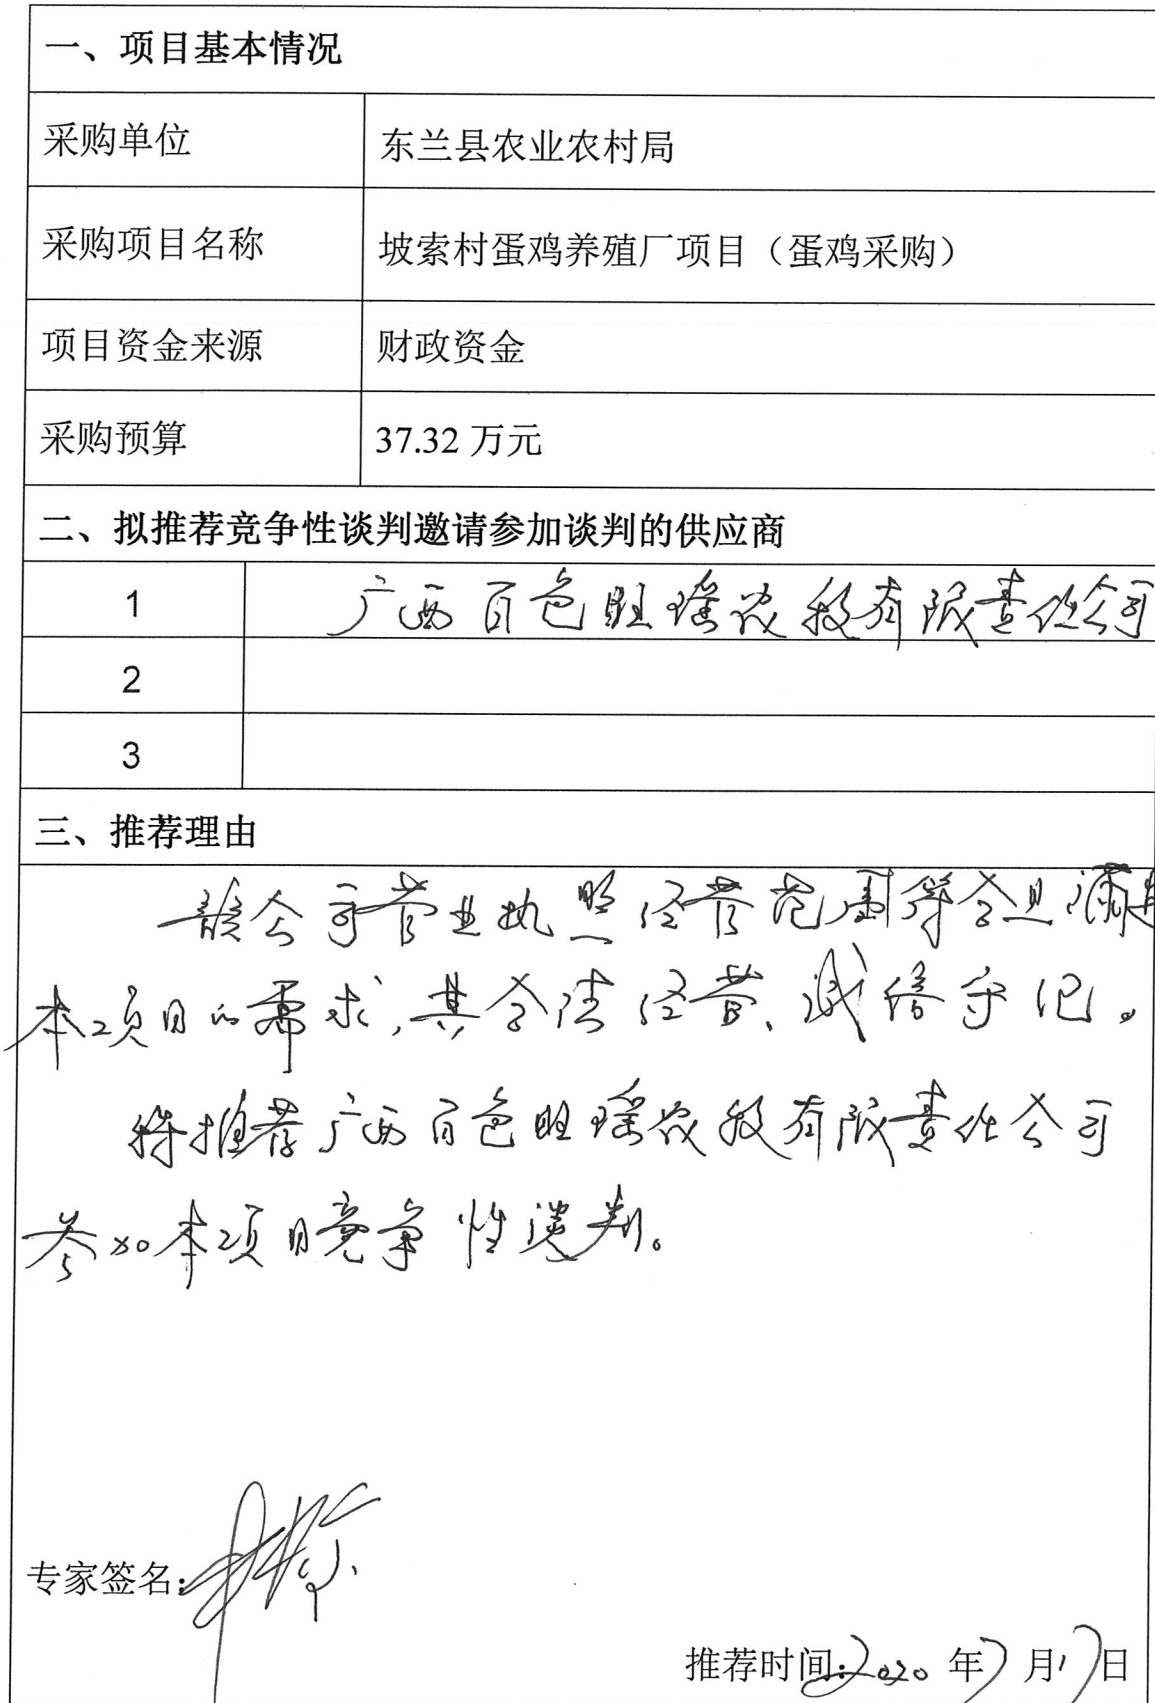 一、项目基本情况
采购单位 东兰县农业农村局
采购项目名称 坡索村蛋鸡养殖厂项目（蛋鸡采购）
项目资金来源 财政资金
采购预算 37.32 万元
二、拟推荐竞争性谈判邀请参加谈判的供应商
1 广西百色旺瑶农投有限责任公司
2
3
三、推荐理由
该公司营业执照经营范围符合且满足
本项目的需求，其合法经营、诚信守纪。
特推荐广西百色旺瑶农投有限责任公司
参加本项目竞争性谈判。
专家签名：
推荐时间：2020 年7月17日